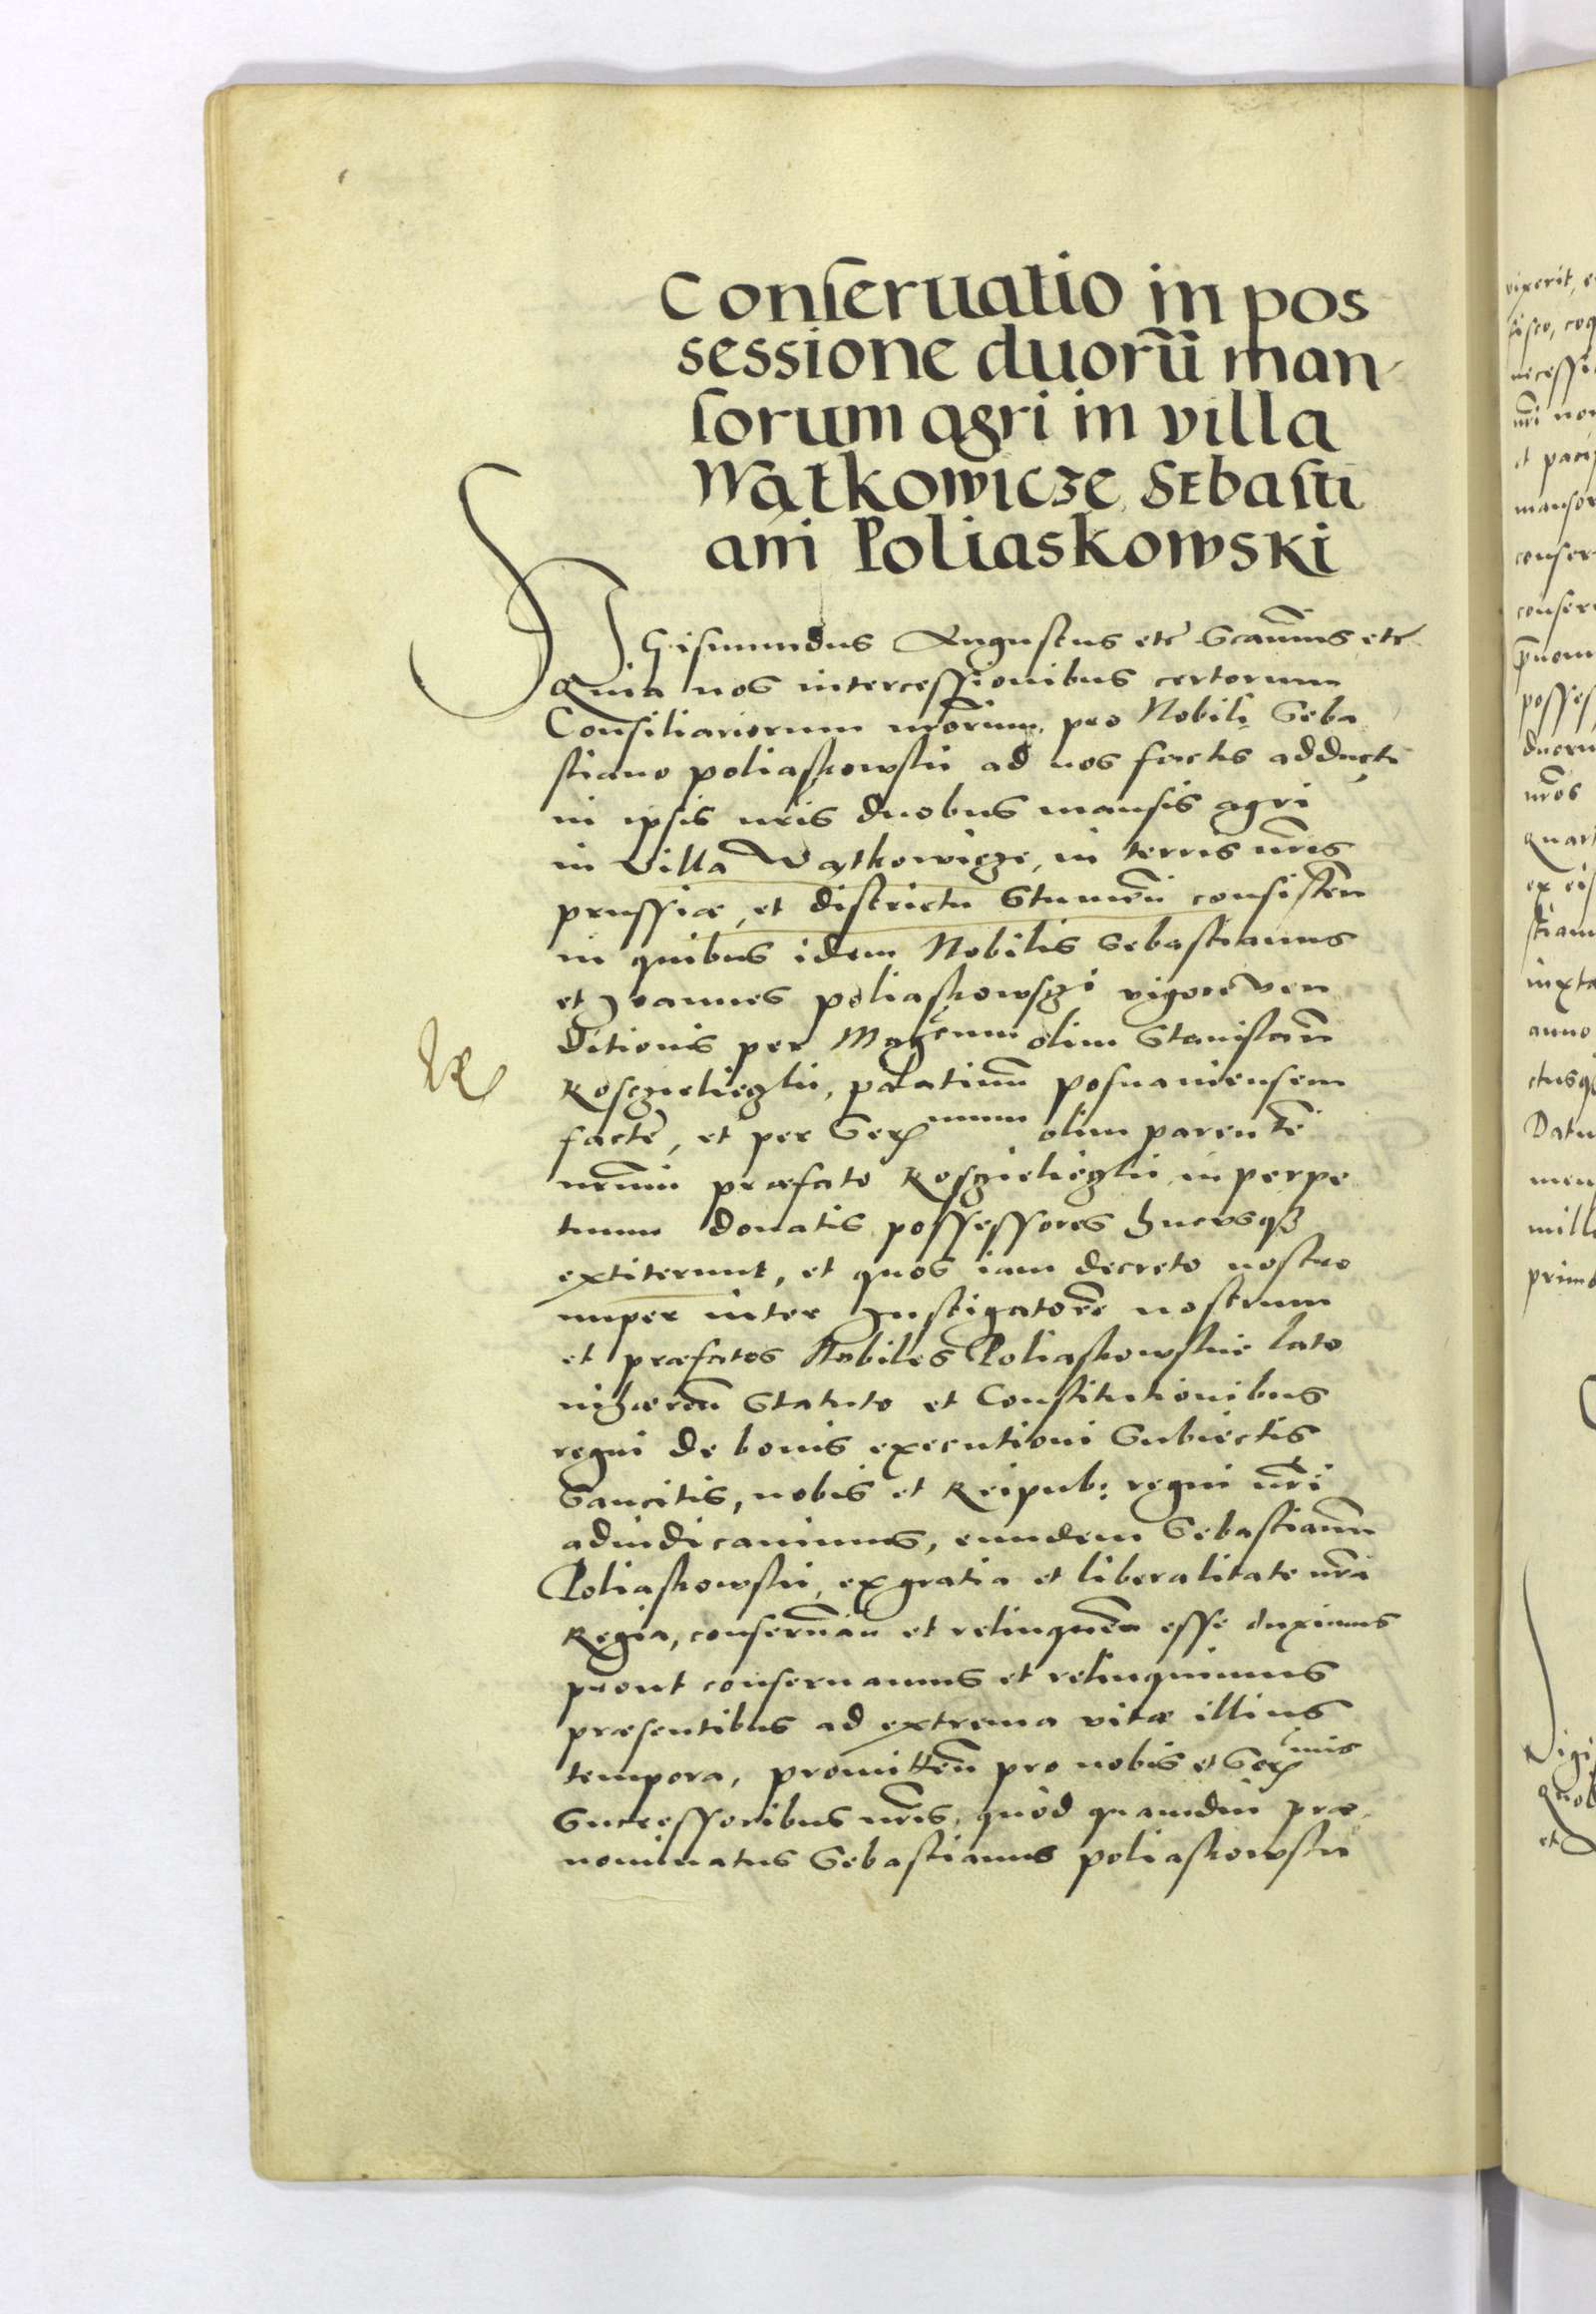 Conseruatio in pos
sessione duorū man
sorum agri in villa
Wątkowicze Sebasti
ani Poliaskowski
Sigismundus Augustus etc̄
Quia nos intercessionibus certorum
Consiliariorum nr̄orum, pro Nobili Seba
stiano poliaskowski ad nos factis adducti
in ipsis nris duobus mansis agri
in villa Wątkowicze, in terris nr̄is
prussiæ, et districtu Stumeñ consisteñ
in quibus idem Nobilis Sebastianus
et Joannes poliaskowsczi vigore ven
ditionis per Magcum olim Stanislaū
Kosczielieczki, palatinū posnaniensem
factæ, et per Sermum olim parentē
nr̄um præfato Kosczielieczki in perpe
tuum donatis possessores hucusqȝ
extiterunt, et quos iam decreto nostro
nuper inter Instigatorē nostrum
et præfatos Nobiles Poliaskowskie lato
inhæreñ Statuto et Constitutionibus
regni de bonis executioni Subiectis
Sancitis, nobis et Reipub: regni nr̄i
adiudicauimus, eundem Sebastianū
Poliaskowski, ex gratia et liberalitate nr̄a
Regia, conseruañ et relinqueñ esse duximus
prout conseruamus et relinquimus
præsentibus ad extrema vitæ illius
tempora, promitteñ pro nobis et Sermis
Successoribus nr̄is, quod quamdiu præ
nominatus Sebastianus poliaskowski